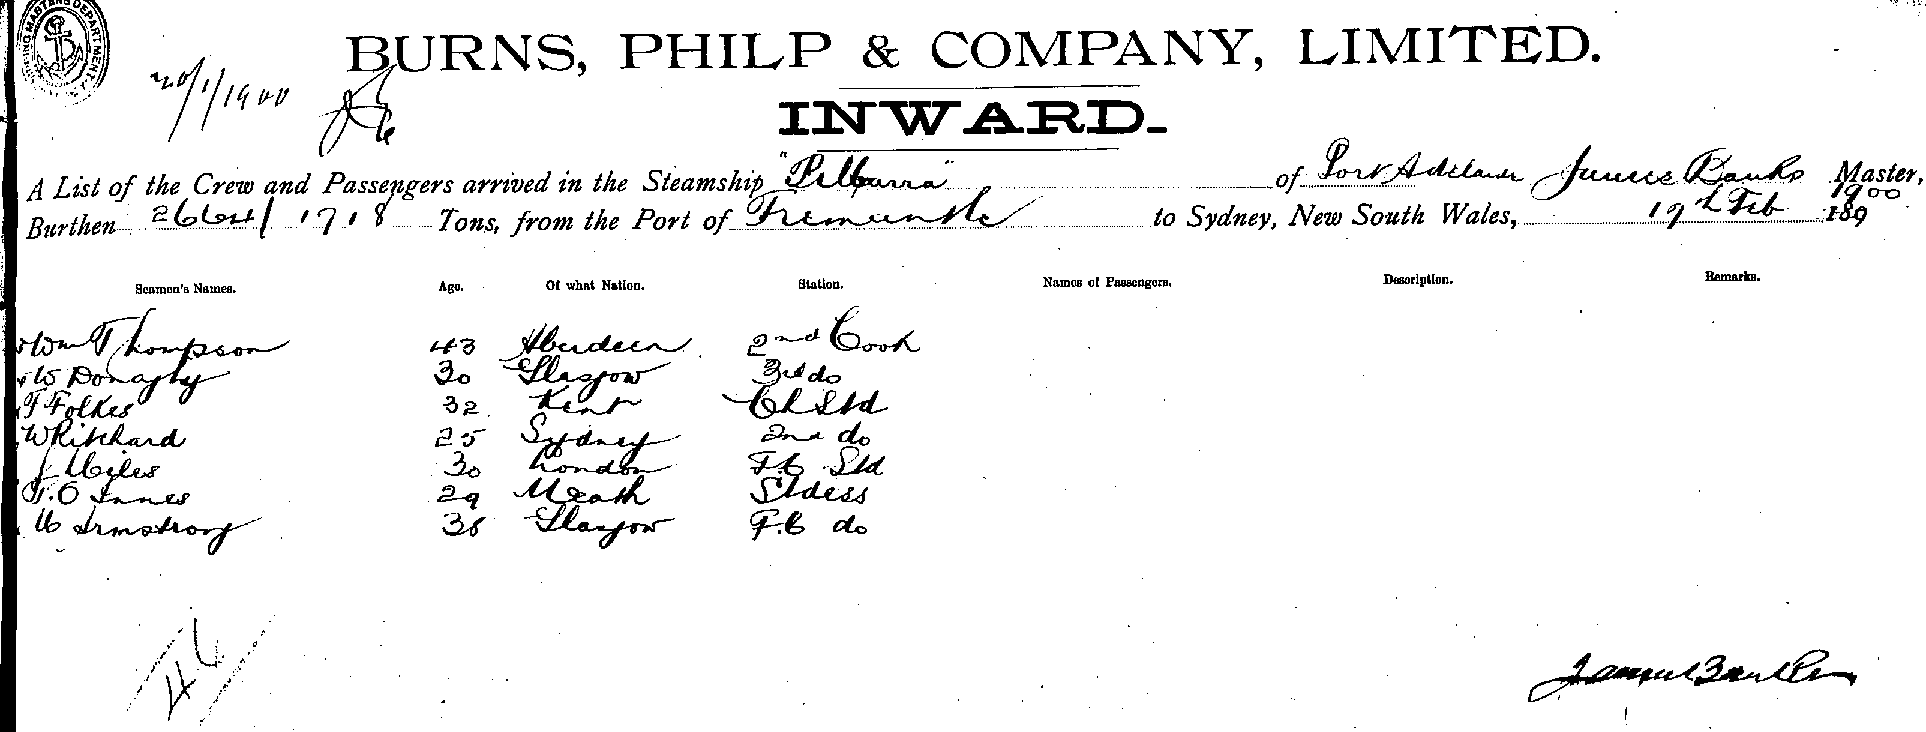 BURNS, PHILP & COMPANY, LIMITED.
20/1/1900
INWARD.
A List of the Crew and Passengers arrived in the Steamship "Pilbarra" of Port Adelaide James Banks Master,
Burthen 2664 / 1718 Tons, from the Port of Fremantle to Sydney, New South Wales, 19th Feb 189 1900
Seamen's Names. Age. Of what Nation. Station. Names of Passengers. Description. Remarks.
Wm Thompson 43 Aberdeen 2nd Cook
W Donaghy 30 Glasgow 3rd do
T Folkes 32 Kent Ch Std
W Ritchard 25 Sydney 2nd do
J Miles 30 London F.C Std
T. O Innes 29 Meath Stdess
Armstrong 36 Glasgow F.C do
46
James Banks